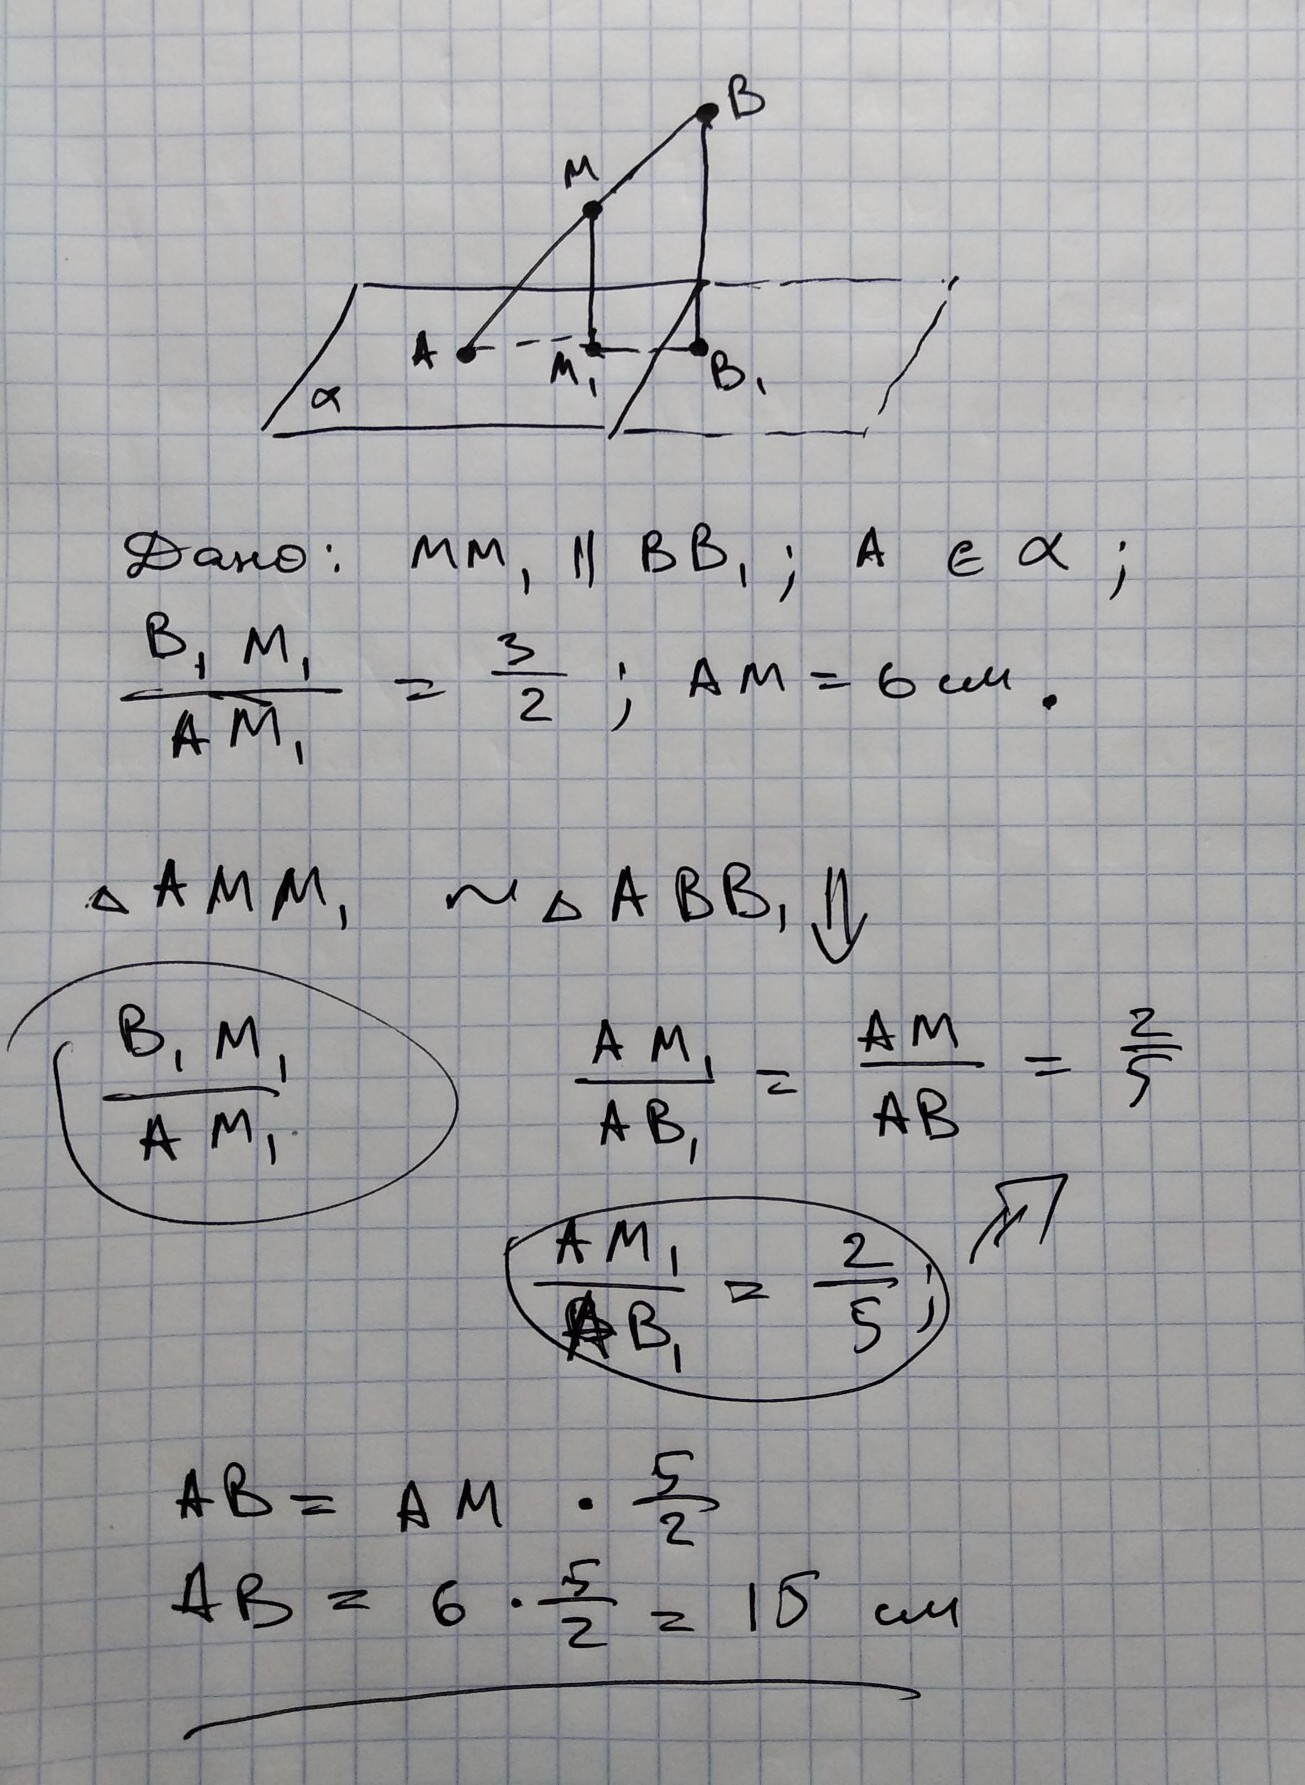 B
M
A
M₁
B₁
α
Дано: MM₁ || BB₁; A ∈ α;
B₁M₁/AM₁ = 3/2; AM = 6 см.
△AMM₁ ~ △ABB₁ ⇓
B₁M₁/AM₁
AM₁/AB₁ = AM/AB = 2/5
AM₁/AB₁ = 2/5; ⇗
AB = AM · 5/2
AB = 6 · 5/2 = 15 см